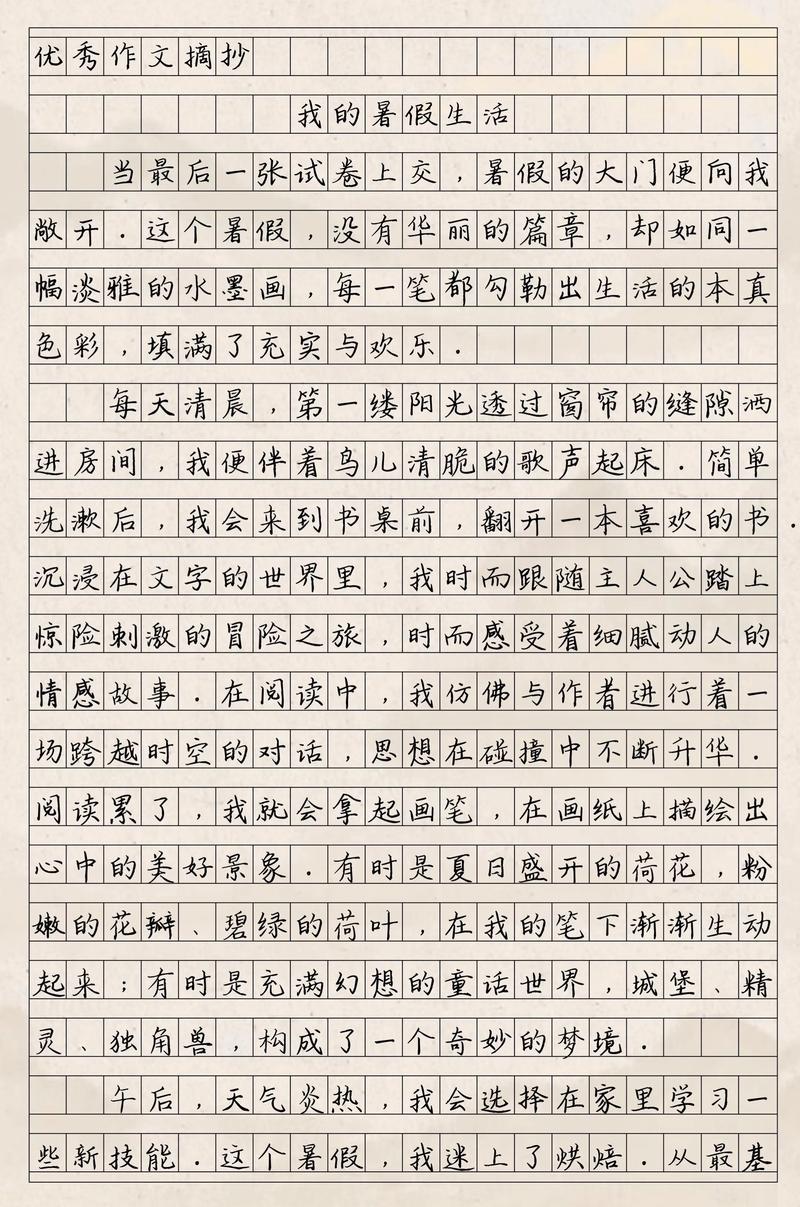 优秀作文摘抄
我的暑假生活
当最后一张试卷上交,暑假的大门便向我
敞开.这个暑假,没有华丽的篇章,却如同一
幅淡雅的水墨画,每一笔都勾勒出生活的本真
色彩,填满了充实与欢乐.
每天清晨,第一缕阳光透过窗帘的缝隙洒
进房间,我便伴着鸟儿清脆的歌声起床.简单
洗漱后,我会来到书桌前,翻开一本喜欢的书.
沉浸在文字的世界里,我时而跟随主人公踏上
惊险刺激的冒险之旅,时而感受着细腻动人的
情感故事.在阅读中,我仿佛与作者进行着一
场跨越时空的对话,思想在碰撞中不断升华.
阅读累了,我就会拿起画笔,在画纸上描绘出
心中的美好景象.有时是夏日盛开的荷花,粉
嫩的花瓣、碧绿的荷叶,在我的笔下渐渐生动
起来;有时是充满幻想的童话世界,城堡、精
灵、独角兽,构成了一个奇妙的梦境.
午后,天气炎热,我会选择在家里学习一
些新技能.这个暑假,我迷上了烘焙.从最基